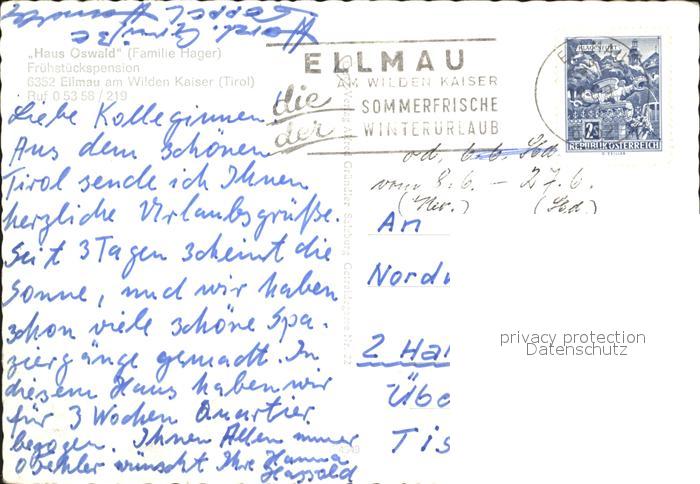 „Haus Oswald" (Familie Hager)
Frühstückspension
6352 Ellmau am Wilden Kaiser (Tirol)
Ruf 0 53 58 / 219
Liebe Kolleginnen!
Aus dem schönen
Tirol sende ich Ihnen
herzliche Urlaubsgrüße.
Seit 3 Tagen scheint die
Sonne, und wir haben
schon viele schöne Spa-
ziergänge gemacht. In
diesem Haus haben wir
für 3 Wochen Quartier
bezogen. Ihnen Allen
wünscht Ihre Hanna
ELLMAU
AM WILDEN KAISER
die SOMMERFRISCHE
der WINTERURLAUB
2S
REPUBLIK ÖSTERREICH
vom 8.6. – 27.6.
An
Nord
2 Ha
Übe
Tis
privacy protection
Datenschutz